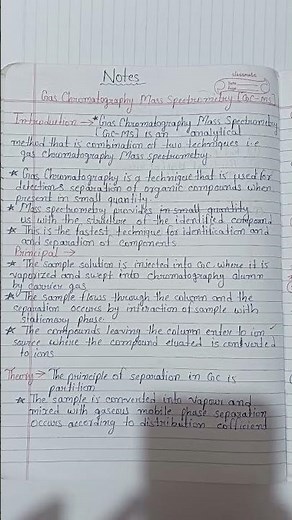 Notes
classmate
Gas Chromatography Mass Spectrometry [GC-MS]
Introduction → * Gas Chromatography Mass Spectrometry
[GC-MS] is an analytical
method that is combination of two techniques i.e
gas chromatography Mass spectrometry.
* Gas Chromatography is a technique that is used for
detection & separation of organic compounds when
present in small quantity.
* Mass spectrometry provides in small quantity
us with the structure of the identified compound
* This is the fastest technique for identification and
and separation of components
Principal →
* The sample solution is injected into GC where it is
vaporized and swept into chromatography alumn
by carrier gas
* The sample flows through the column and the
separation occurs by interaction of sample with
stationary phase.
* The compounds leaving the column enter to ion
source where the compound eluated is converted
to ions
Theory → The principle of separation in GC is
partition
* The sample is converted into vapour and
mixed with gaseous mobile phase separation
occurs according to distribution cofficient